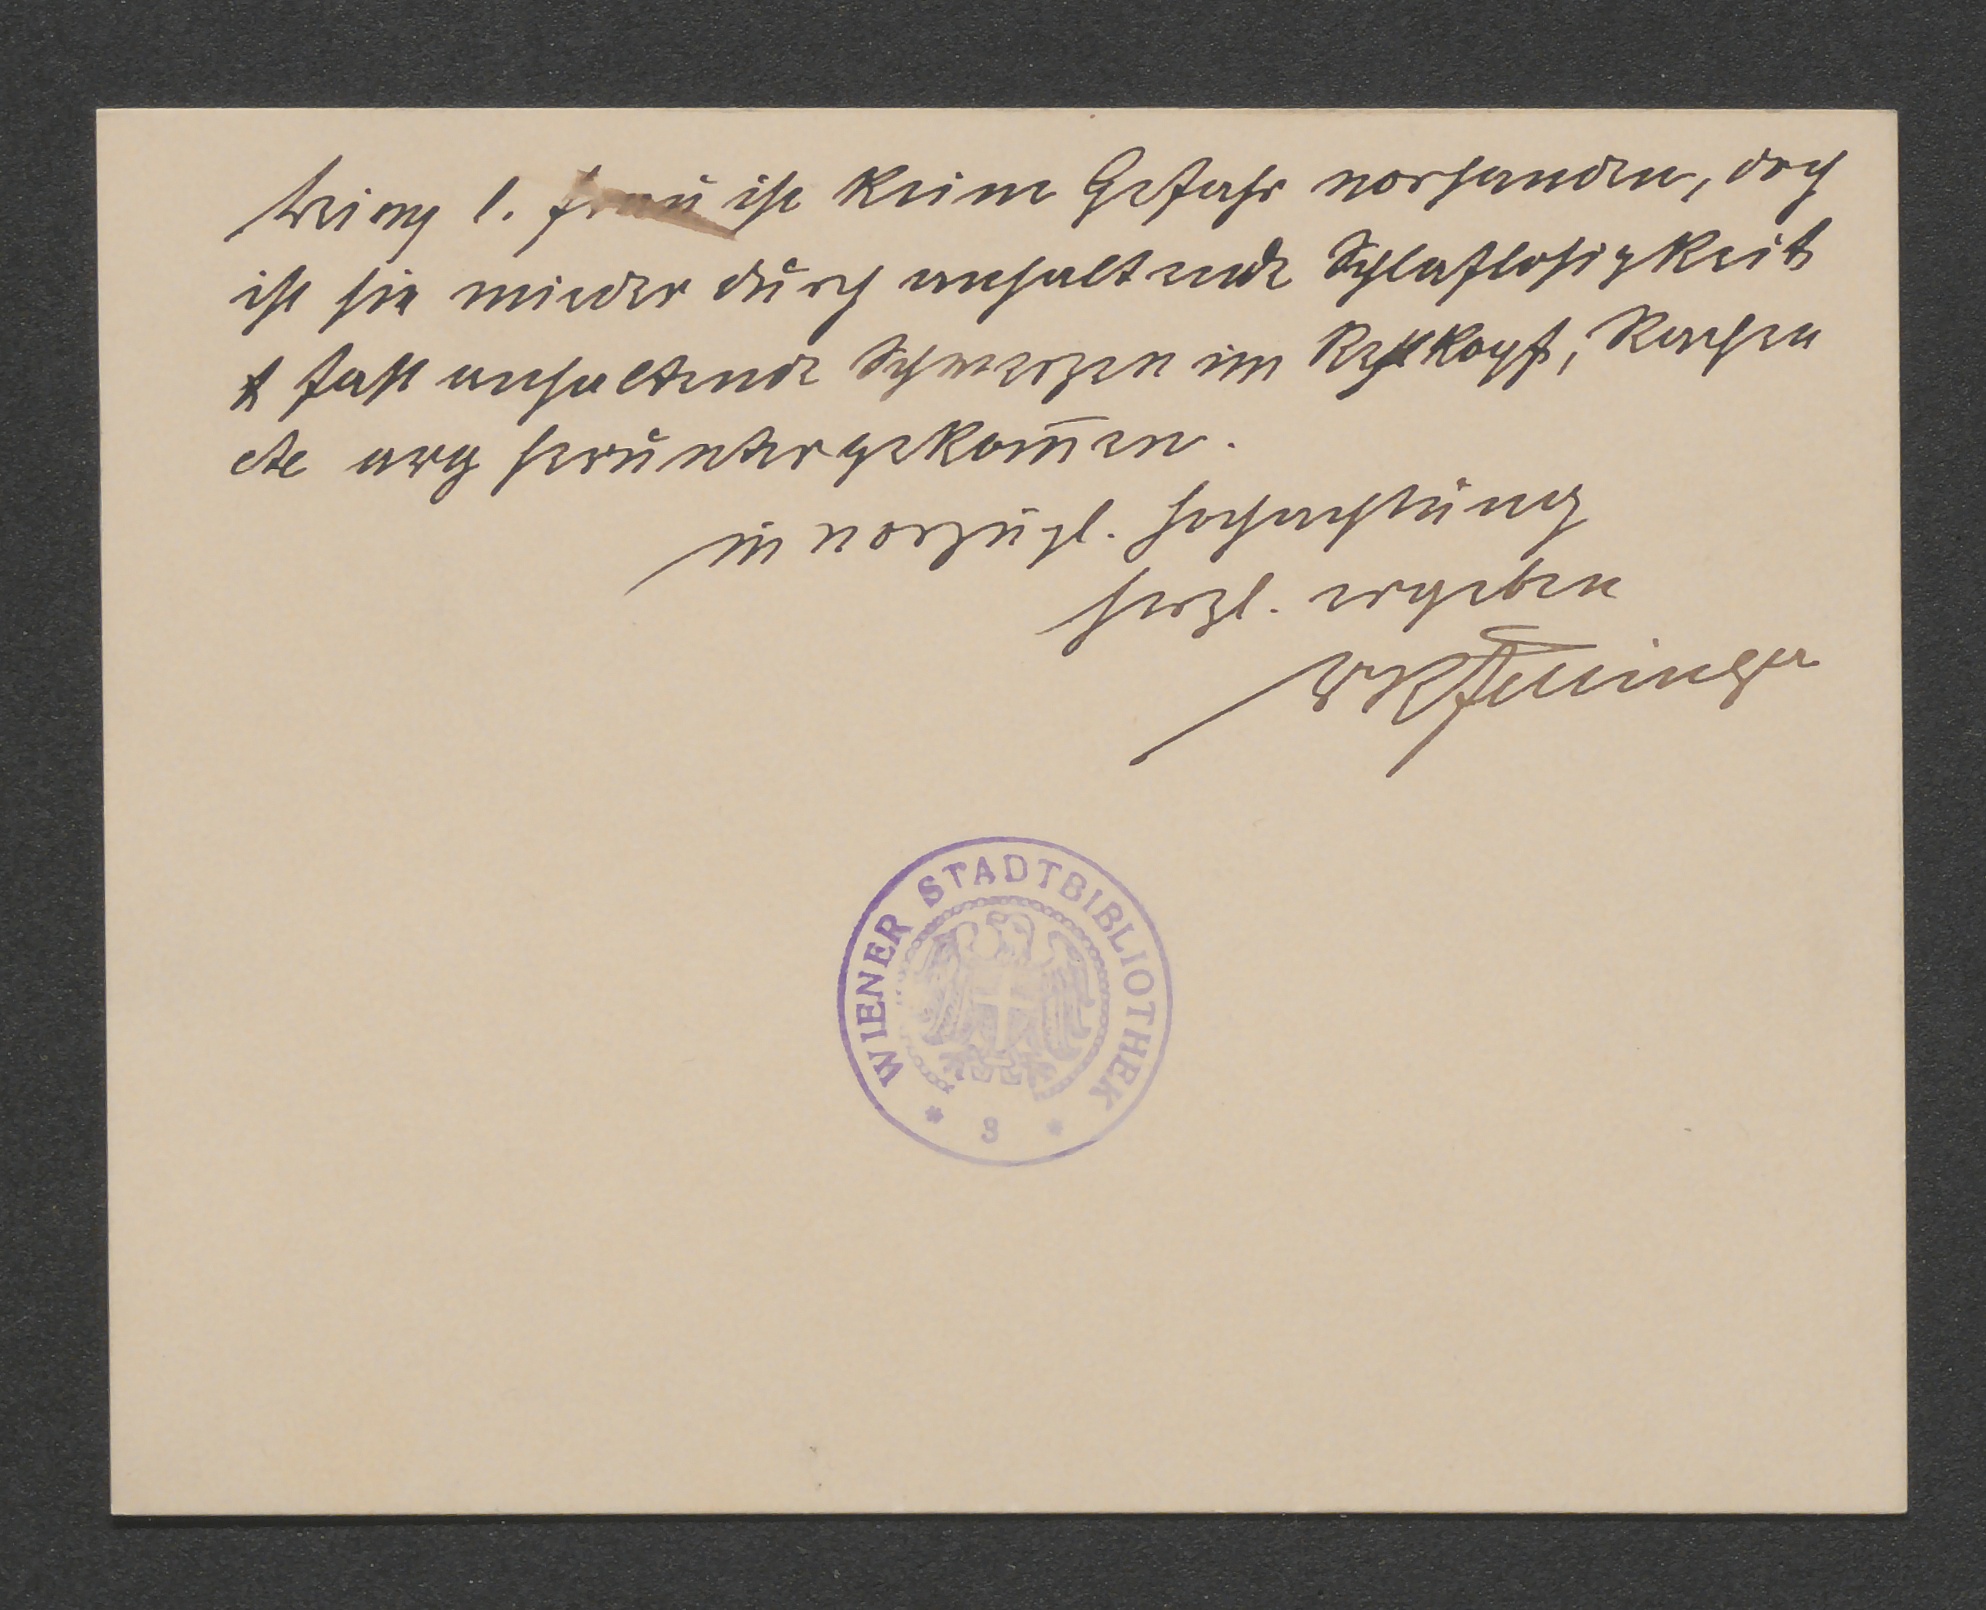 Bei my l. Frau ist keine Gefahr vorhanden, doch
ist sie wieder durch anhaltende Schlaflosigkeit
& fast anhaltende Schmerzen im Kehlkopf, Rachen
etc arg heruntergekom̅en.
in vorzügl. Hochachtung
herzl. ergeben
WIENER STADTBIBLIOTHEK
* 3 *